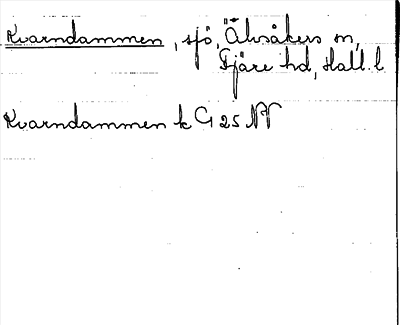 Kvarndammen, sjö, Älvsåkers sn,
Fjäre hd, Hall. l
Kvarndammen k G 25 NV